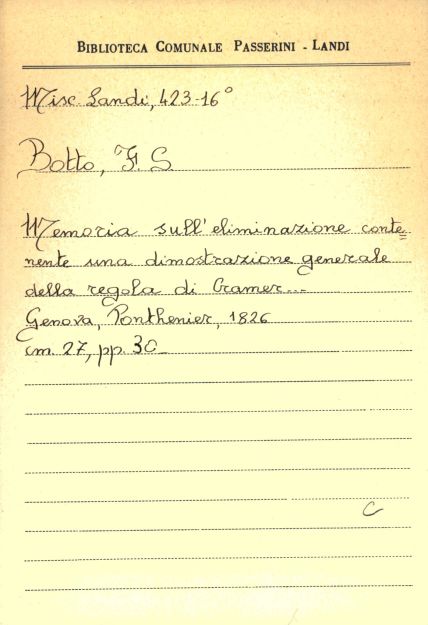 BIBLIOTECA COMUNALE PASSERINI - LANDI
Misc. Landi, 423-16°
Botto, F. S
Memoria sull'eliminazione conte=
nente una dimostrazione generale
della regola di Cramer...
Genova, Ponthenier, 1826
cm. 27, pp. 30_
C